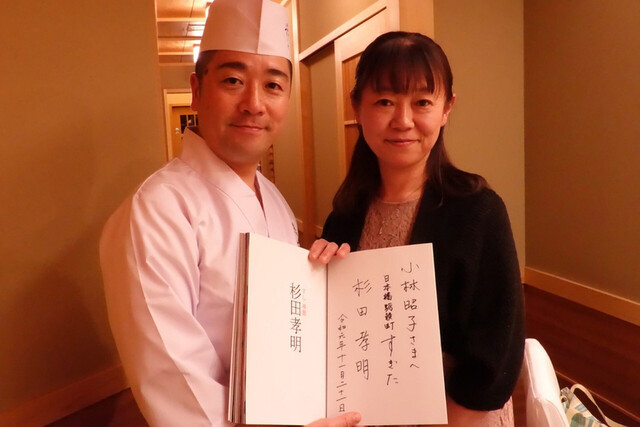 小林昭子さまへ
日本橋蛎殻町 すぎた
杉田孝明
令和元年十一月二十一日
杉田孝明